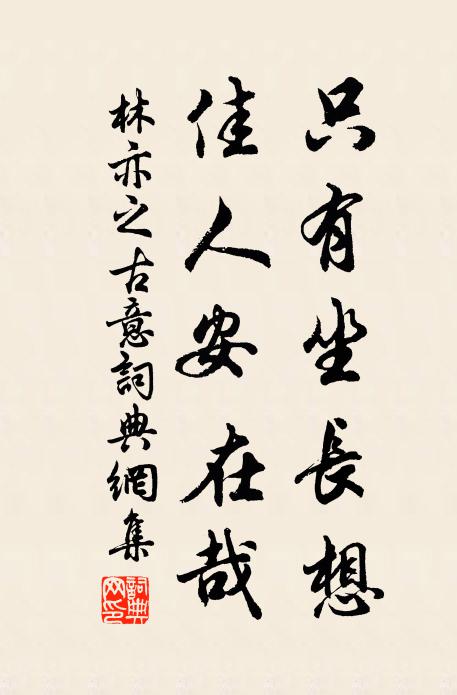 只有坐長想
佳人安在哉
林亦之古意詞典網集
詞典網印